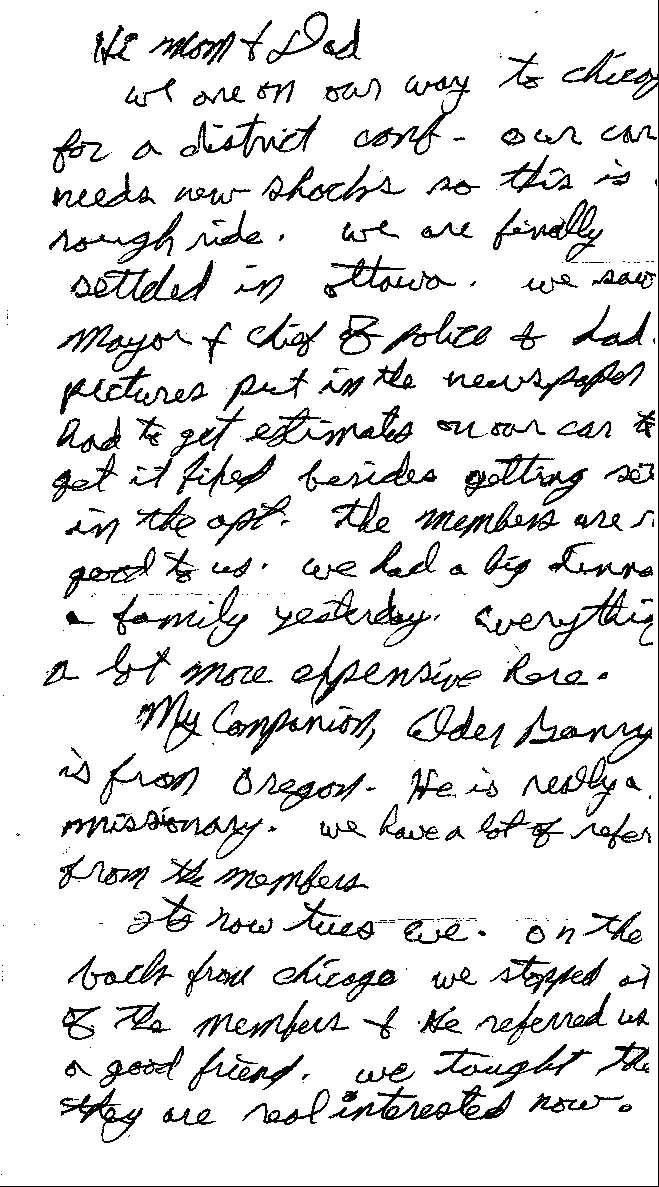 Hi mom & Dad
we are on our way to chicag
for a district conf- our car
needs new shocks so this is
rough ride. we are finally
settled in ottawa. we saw
mayor & chief of police & had
pictures put in the newspaper
had to get estimates on our car to
get it fixed besides getting set
in the apt. the members are
good to us. we had a big dinne
a family yesterday. everything
a lot more expensive here.
My Companion, Elder
is from Oregon. He is really a
missionary. we have a lot of refer
from the members
its now tues eve. on the
back from chicago we stopped at
of the members & He referred us
a good friend. we taught the
they are real interested now.